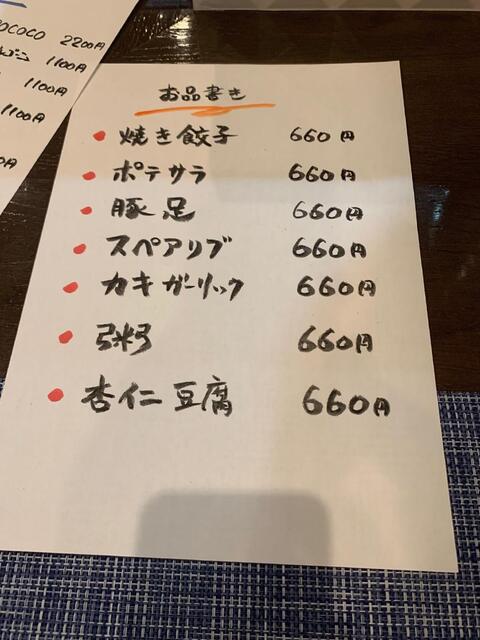 COCO 2200円
1100円
1100円
1100円
お品書き
焼き餃子 660円
ポテサラ 660円
豚足 660円
スペアリブ 660円
カキガーリック 660円
粥 660円
杏仁豆腐 660円